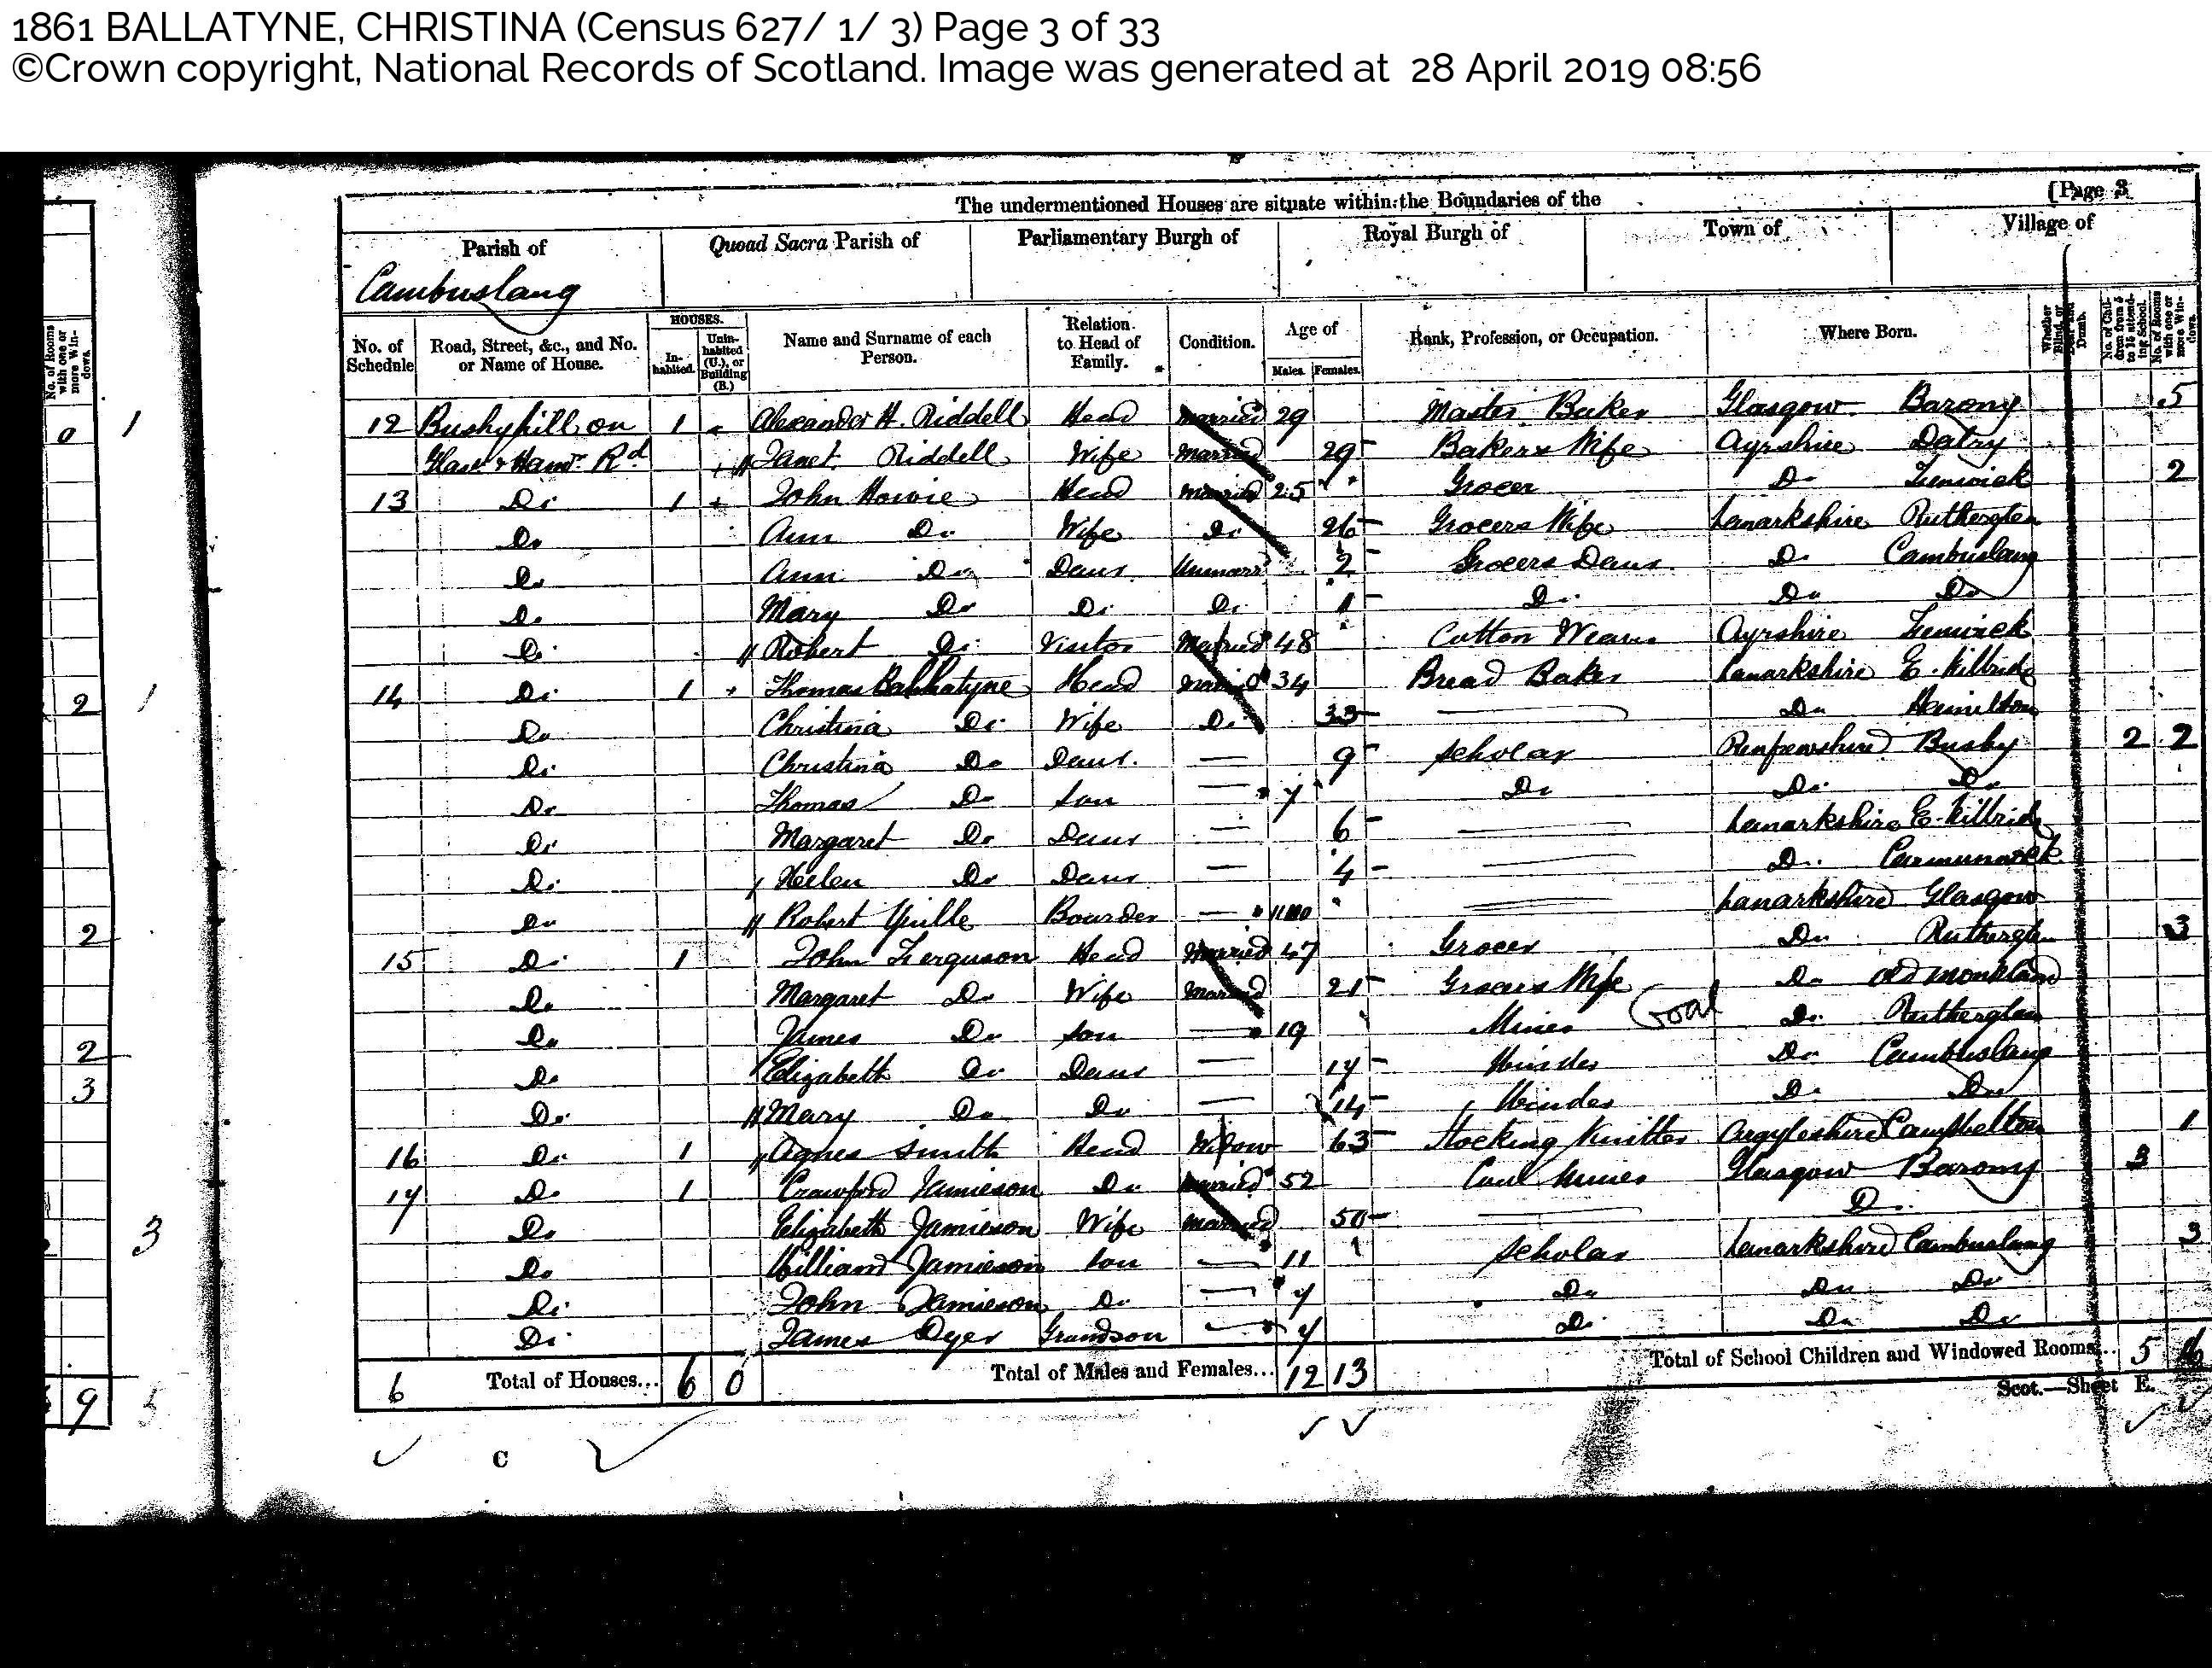 1861 BALLATYNE, CHRISTINA (Census 627/ 1/ 3) Page 3 of 33
©Crown copyright, National Records of Scotland. Image was generated at 28 April 2019 08:56
[Page 3
The undermentioned Houses are situate within the Boundaries of the
Parish of Quoad Sacra Parish of Parliamentary Burgh of Royal Burgh of Town of Village of
Cambuslang
No. of Schedule Road, Street, &c., and No. or Name of House. HOUSES. Inhabited. Uninhabited (U.), or Building (B.) Name and Surname of each Person. Relation to Head of Family. Condition. Age of Males. Females. Rank, Profession, or Occupation. Where Born. Whether Blind, or Deaf and Dumb. No. of Children from 5 to 15 attending School. No. of Rooms with one or more Windows.
12 Bushyhill on 1 Alexander H. Riddell Head Married 29 Master Baker Glasgow Barony 5
Glasw & Hamn Rd Janet Riddell Wife Married 29 Bakers Wife Ayrshire Dalry
13 Do 1 John Howie Head Married 25 Grocer Do Fenwick 2
Do Ann Do Wife Do 26 Grocers Wife Lanarkshire Rutherglen
Do Ann Do Daur Unmarrd 2 Grocers Daur Do Cambuslang
Do Mary Do Do Do 1 Do Do Do
Do Robert Do Visitor Married 48 Cotton Weaver Ayrshire Fenwick
14 Do 1 Thomas Ballatyne Head Married 34 Bread Baker Lanarkshire E. Kilbride
Do Christina Do Wife Do 33 — Do Hamilton
Do Christina Do Daur. — 9 Scholar Renfrewshire Busby 2 2
Do Thomas Do Son — 7 Do Do Do
Do Margaret Do Daur — 6 — Lanarkshire E. Kilbride
Do Helen Do Daur — 4 — Do Carmunnock
Do Robert Yuille Boarder — 11 Mo — Lanarkshire Glasgow
15 Do 1 John Ferguson Head Married 47 Grocer Do Rutherglen 3
Do Margaret Do Wife Married 21 Grocers Wife Do Old Monkland
Do James Do Son — 19 Miner Coal Do Rutherglen
Do Elizabeth Do Daur — 17 Winder Do Cambuslang
Do Mary Do Do — 14 Winder Do Do
16 Do 1 Agnes Smith Head Widow 63 Stocking Knitter Argyleshire Campbelton 1
17 Do 1 Crawford Jamieson Do Married 52 Coal Miner Glasgow Barony 3
Do Elizabeth Jamieson Wife Married 50 — Do
Do William Jamieson Son — 11 Scholar Lanarkshire Cambuslang 3
Do John Jamieson Do — 7 Do Do Do
Do James Dyer Grandson — 7 Do Do Do
6 Total of Houses... 6 0 Total of Males and Females... 12 13 Total of School Children and Windowed Rooms... 5 16
Scot.—Sheet E.
C
No. of Rooms with one or more Windows.
0 1
2 1
2
2
3
3
9 5